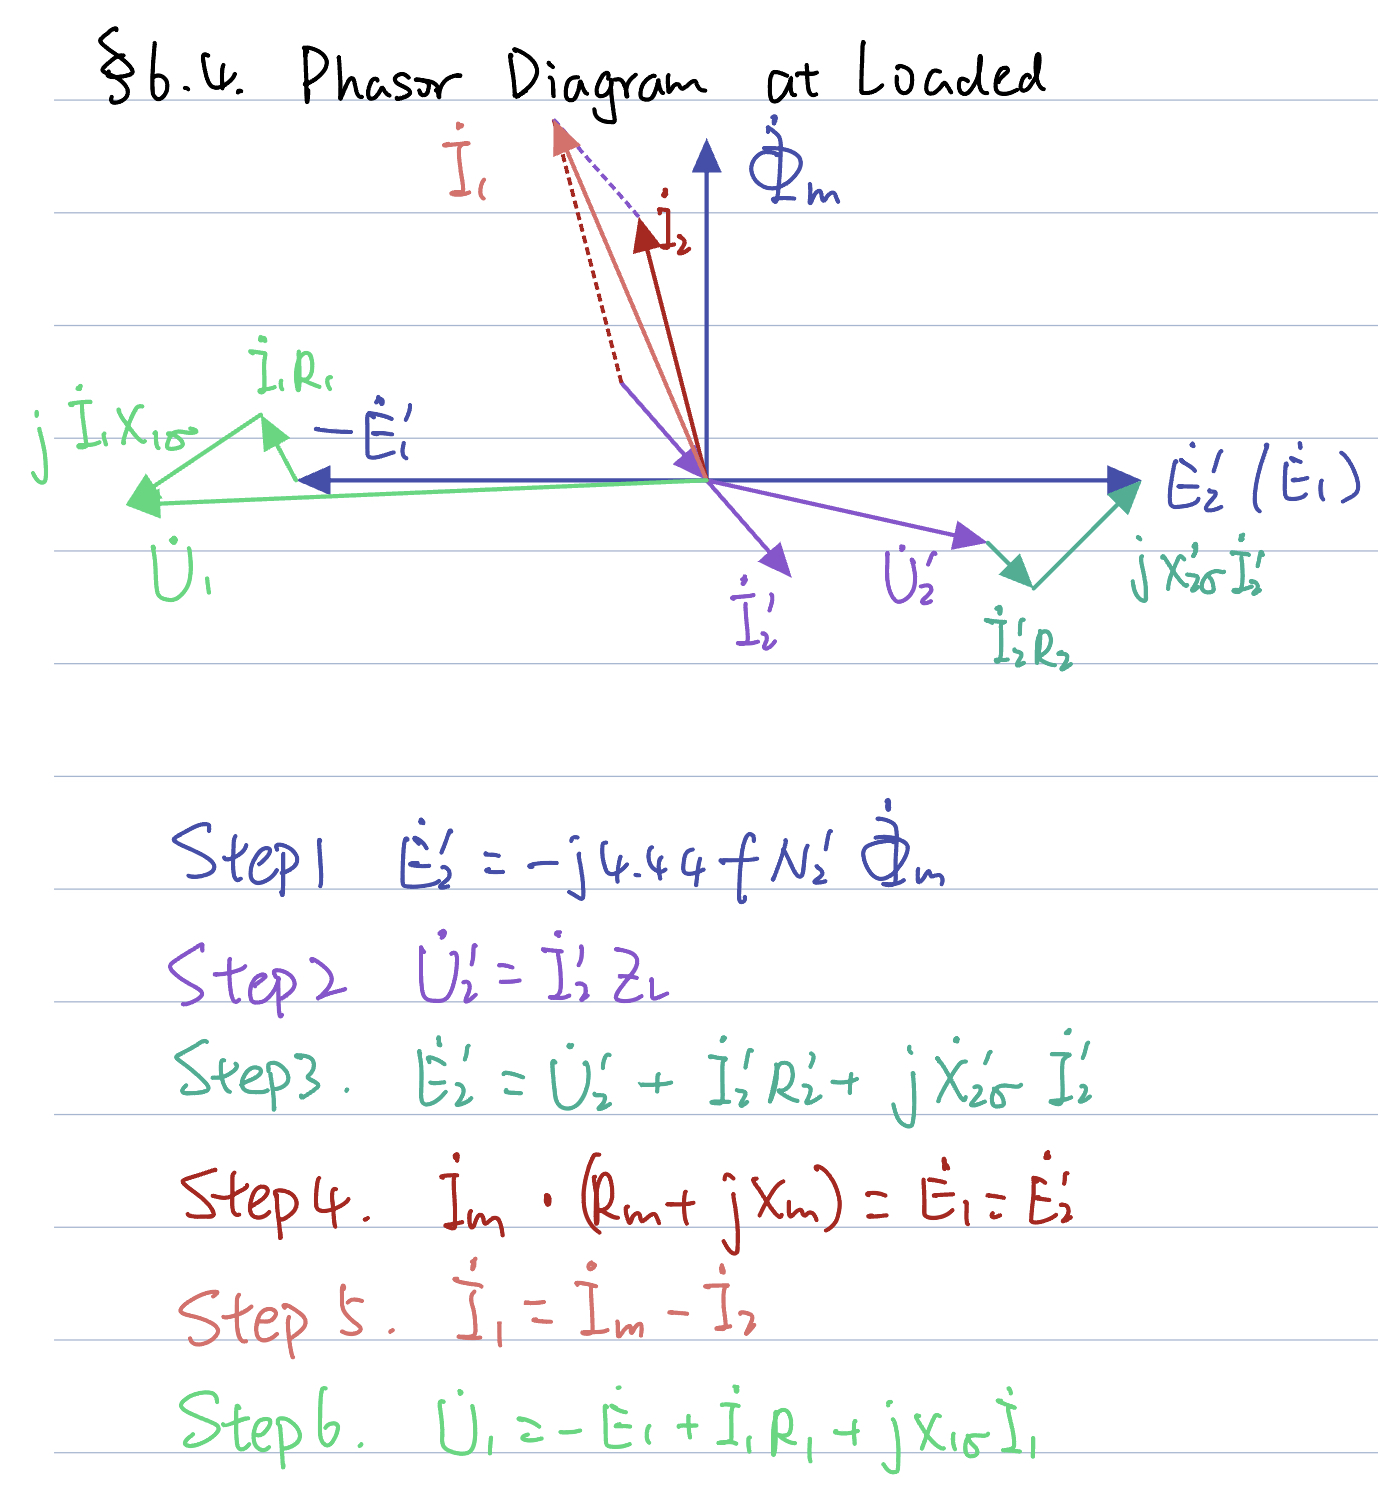 §6.4. Phasor Diagram at Loaded
İ₁
Φ̇m
İ₂
İ₁R₁
jİ₁X₁σ
−Ė₁′
Ė₂′(Ė₁)
U̇₁
U̇₂′
jX₂σ′İ₂′
İ₂′
İ₂′R₂
Step1 Ė₂′ = −j4.44fN₂′Φ̇m
Step2 U̇₂′ = İ₂′ZL
Step3. Ė₂′ = U̇₂′ + İ₂′R₂′ + jẊ₂σ′İ₂′
Step4. İm · (Rm + jXm) = Ė₁ = Ė₂′
Step 5. İ₁ = İm − İ₂
Step6. U̇₁ = −Ė₁ + İ₁R₁ + jX₁σİ₁